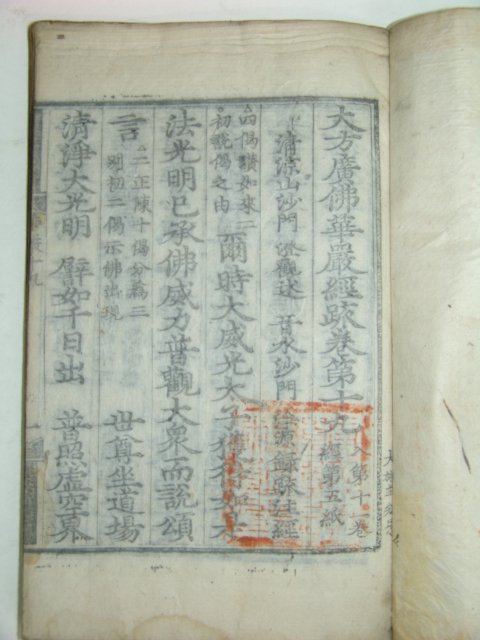 大方廣佛華嚴經䟽卷第十九
入第十一卷
經第五紙
清涼山沙門 澄觀述 晉水沙門 淨源錄䟽注經
四偈讚如來二
初說偈之由
爾時大威光太子獲得如是
法光明已承佛威力普觀大衆而說頌
言
二正陳十偈分爲三
初二偈示佛出現
世尊坐道場
清淨大光明 譬如千日出 普照虛空界